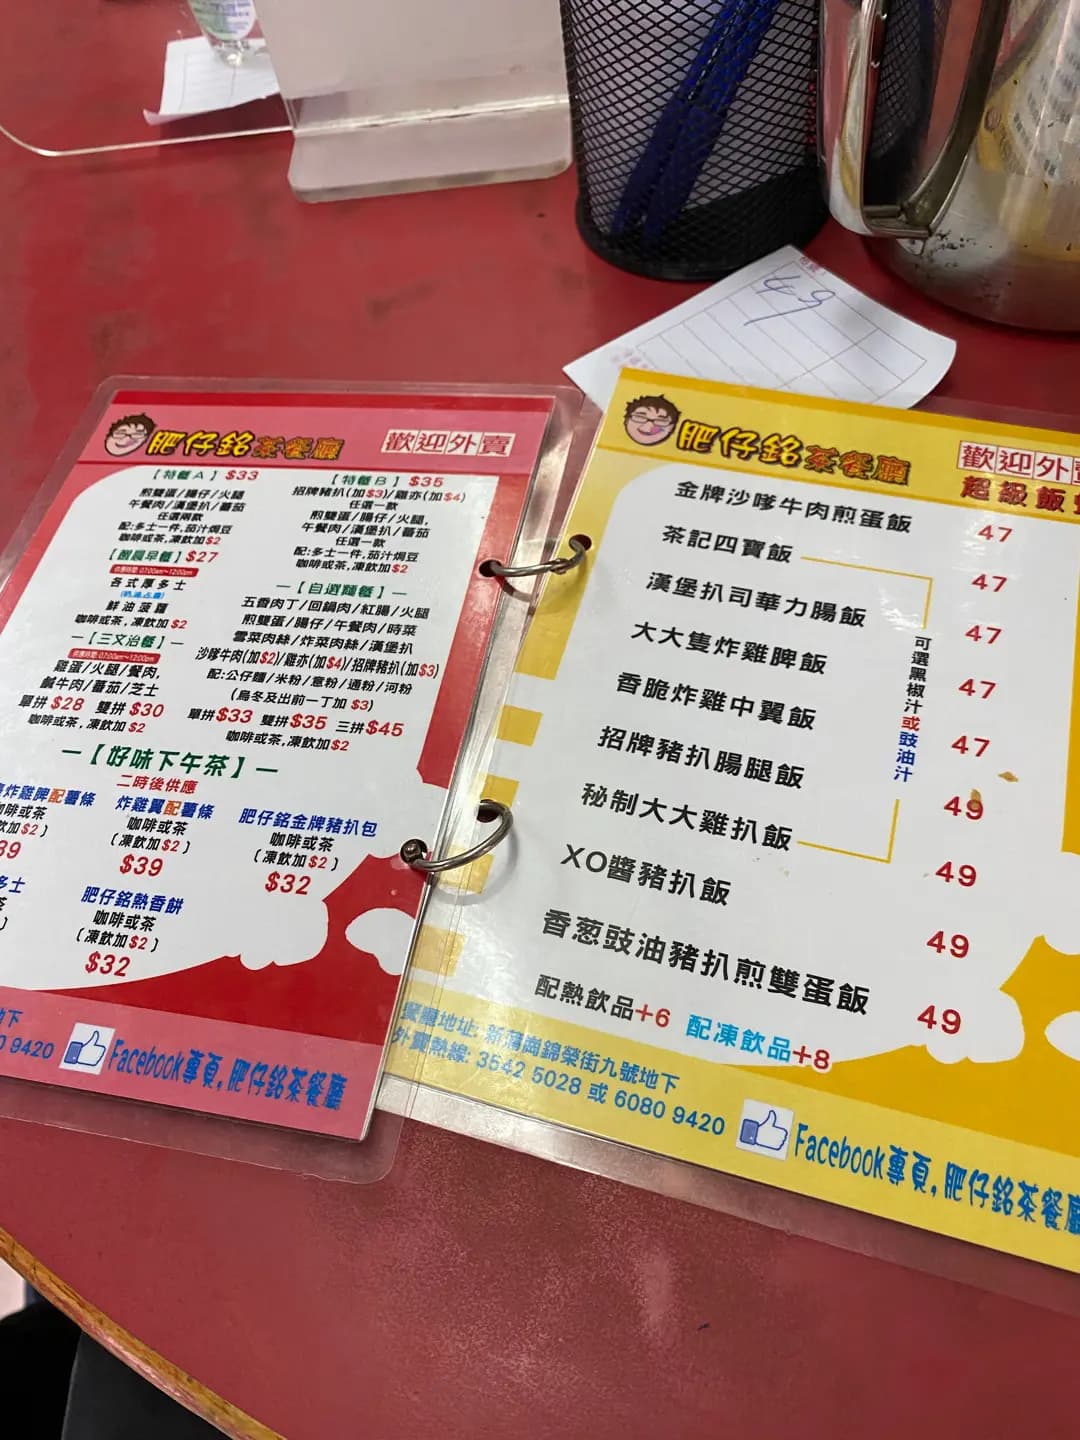 49
肥仔銘茶餐廳
歡迎外賣
【特餐A】 $33
煎雙蛋/腸仔/火腿
午餐肉/漢堡扒/蕃茄
任選兩款
配:多士一件,茄汁焗豆
咖啡或茶,凍飲加$2
【特餐B】 $35
招牌豬扒(加$3)/雞亦(加$4)
任選一款
煎雙蛋/腸仔/火腿,
午餐肉/漢堡扒/蕃茄
任選一款
配:多士一件,茄汁焗豆
咖啡或茶,凍飲加$2
早餐】 $27
供應時間: 07:00am~12:00pm
各式厚多士
鮮油菠蘿
咖啡或茶,凍飲加$2
一【三文治餐】一
供應時間: 07:00am~12:00pm
雞蛋/火腿/餐肉,
鹹牛肉/蕃茄/芝士
單拼$28 雙拼$30
咖啡或茶,凍飲加$2
一【自選麵餐】一
五香肉丁/回鍋肉/紅腸/火腿
煎雙蛋/腸仔/午餐肉/時菜
雪菜肉絲/炸菜肉絲/漢堡扒
沙嗲牛肉(加$2)/雞亦(加$4)/招牌豬扒(加$3)
配:公仔麵/米粉/意粉/通粉/河粉
(烏冬及出前一丁加 $3)
單拼$33 雙拼$35 三拼$45
咖啡或茶,凍飲加$2
一【好味下午茶】一
二時後供應
炸雞脾配薯條
咖啡或茶
加$2)
39
炸雞翼配薯條
咖啡或茶
(凍飲加$2)
$39
肥仔銘金牌豬扒包
咖啡或茶
(凍飲加$2)
$32
多士
茶
)
肥仔銘熱香餅
咖啡或茶
(凍飲加$2)
$32
地下
0 9420
Facebook專頁,肥仔銘茶餐廳
肥仔銘茶餐廳
歡迎外賣
超級飯
金牌沙嗲牛肉煎蛋飯 47
茶記四寶飯 47
漢堡扒司華力腸飯 47
大大隻炸雞脾飯 47
香脆炸雞中翼飯 47
招牌豬扒腸腿飯 49
秘制大大雞扒飯 49
XO醬豬扒飯 49
香葱豉油豬扒煎雙蛋飯 49
可選黑椒汁或豉油汁
配熱飲品+6 配凍飲品+8
餐廳地址: 新蒲崗錦榮街九號地下
外賣熱線: 3542 5028 或 6080 9420
Facebook專頁,肥仔銘茶餐廳